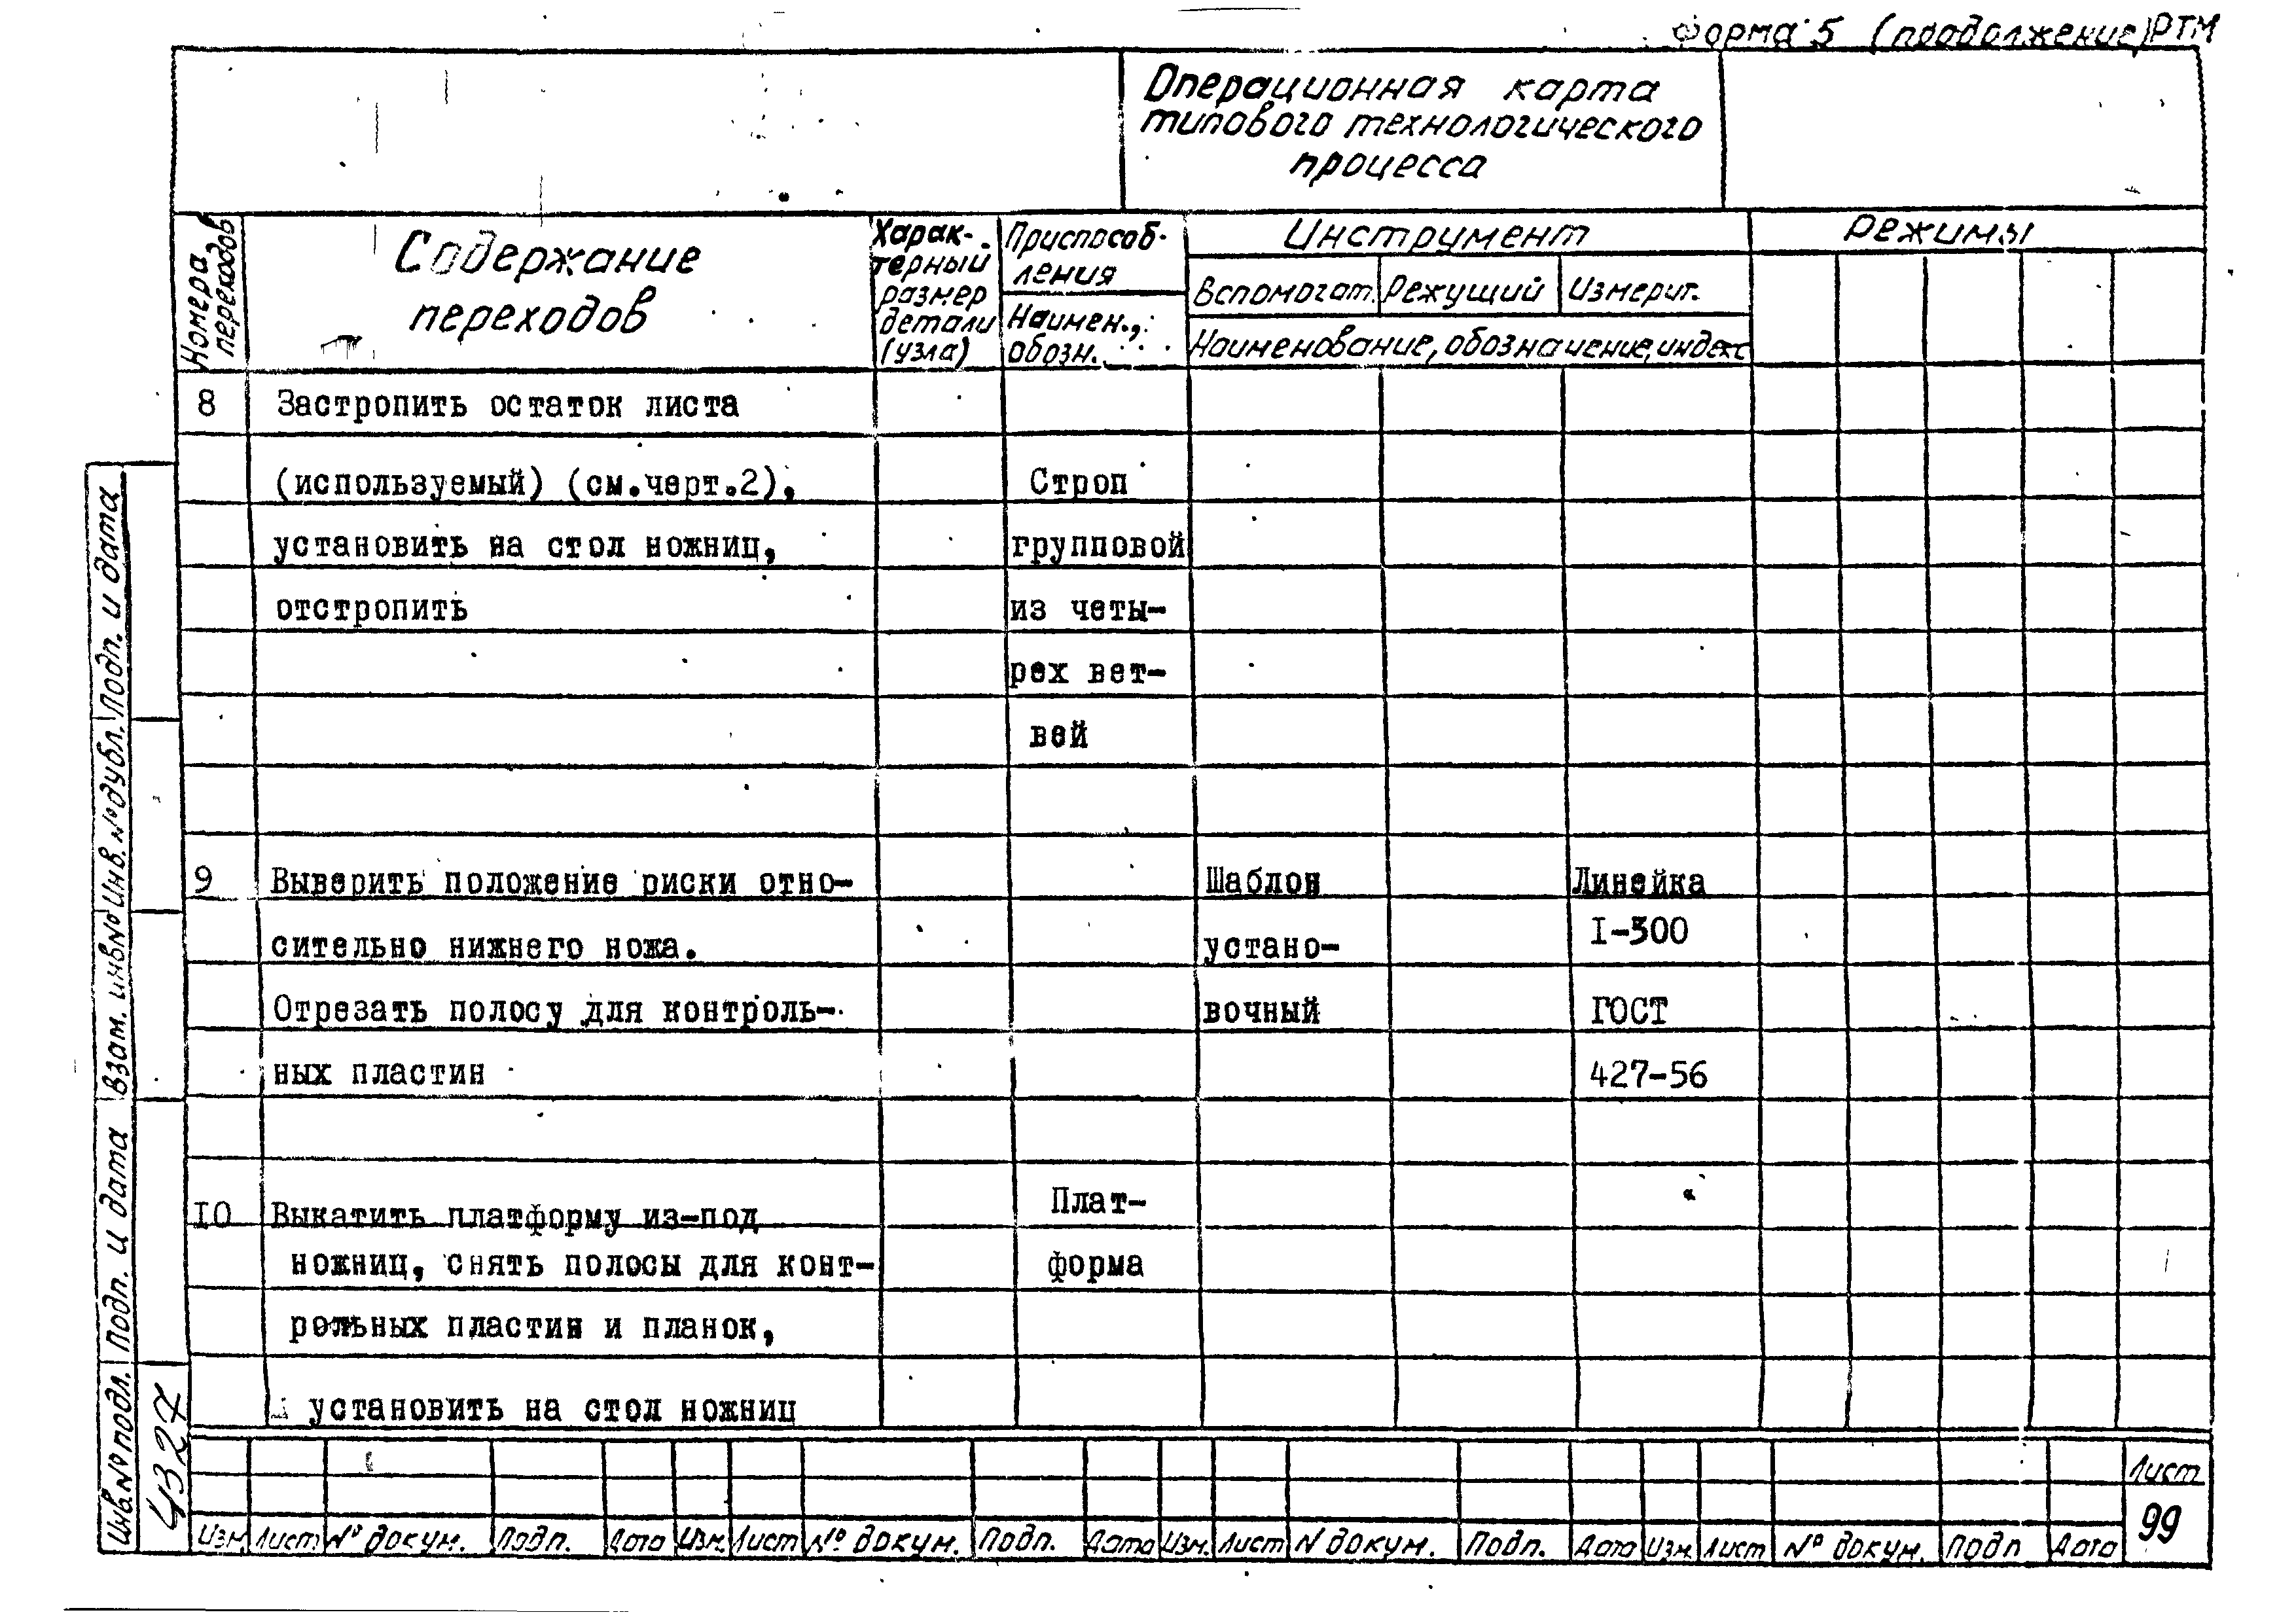 Форма 5 (продолжение) РТМ
Операционная карта
типового технологического
процесса
Номера
переходов
Содержание
переходов
Харак-
терный
размер
детали
(узла)
Приспособ-
ления
Наимен.,
обозн.
Инструмент
Вспомогат. Режущий Измерит.
Наименование, обозначение, индекс
Режимы
8 Застропить остаток листа
(используемый) (см.черт.2), Строп
установить на стол ножниц, групповой
отстропить из четы-
рех вет-
вей
9 Выверить положение риски отно- Шаблон Линейка
сительно нижнего ножа. устано- I-300
Отрезать полосу для контроль- вочный ГОСТ
ных пластин 427-56
10 Выкатить платформу из-под Плат-
ножниц, снять полосы для конт- форма
рольных пластин и планок,
установить на стол ножниц
Подп. и дата
Инв. № дубл.
Взам. инв №
Подп. и дата
Инв № подл.
4327
Изм Лист № докум. Подп. Дата Изм. Лист № докум. Подп. Дата Изм. Лист N докум. Подп. Дата Изм. Лист № докум. Подп Дата
Лист
99